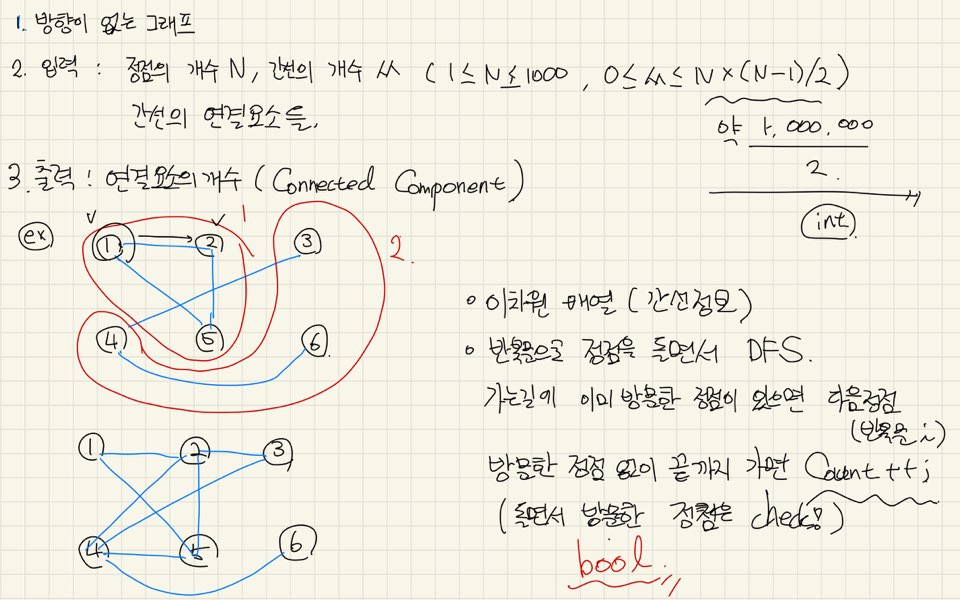 1. 방향이 없는 그래프
2. 입력 : 정점의 개수 N, 간선의 개수 M ( 1 ≤ N ≤ 1000 , 0 ≤ M ≤ N × (N-1)/2 )
간선의 연결요소들.
약 1,000,000
2.
int
3. 출력 : 연결요소의 개수 ( Connected Component )
ex
1 2 3
1
2.
4 5 6
• 이차원 배열 ( 간선정보 )
• 반복문으로 정점을 돌면서 DFS.
가는길에 이미 방문한 정점이 있으면 다음정점
(반복문 i)
방문한 정점 없이 끝까지 가면 Count ++;
( 돌면서 방문한 정점은 check! )
bool.
1 2 3
4 5 6